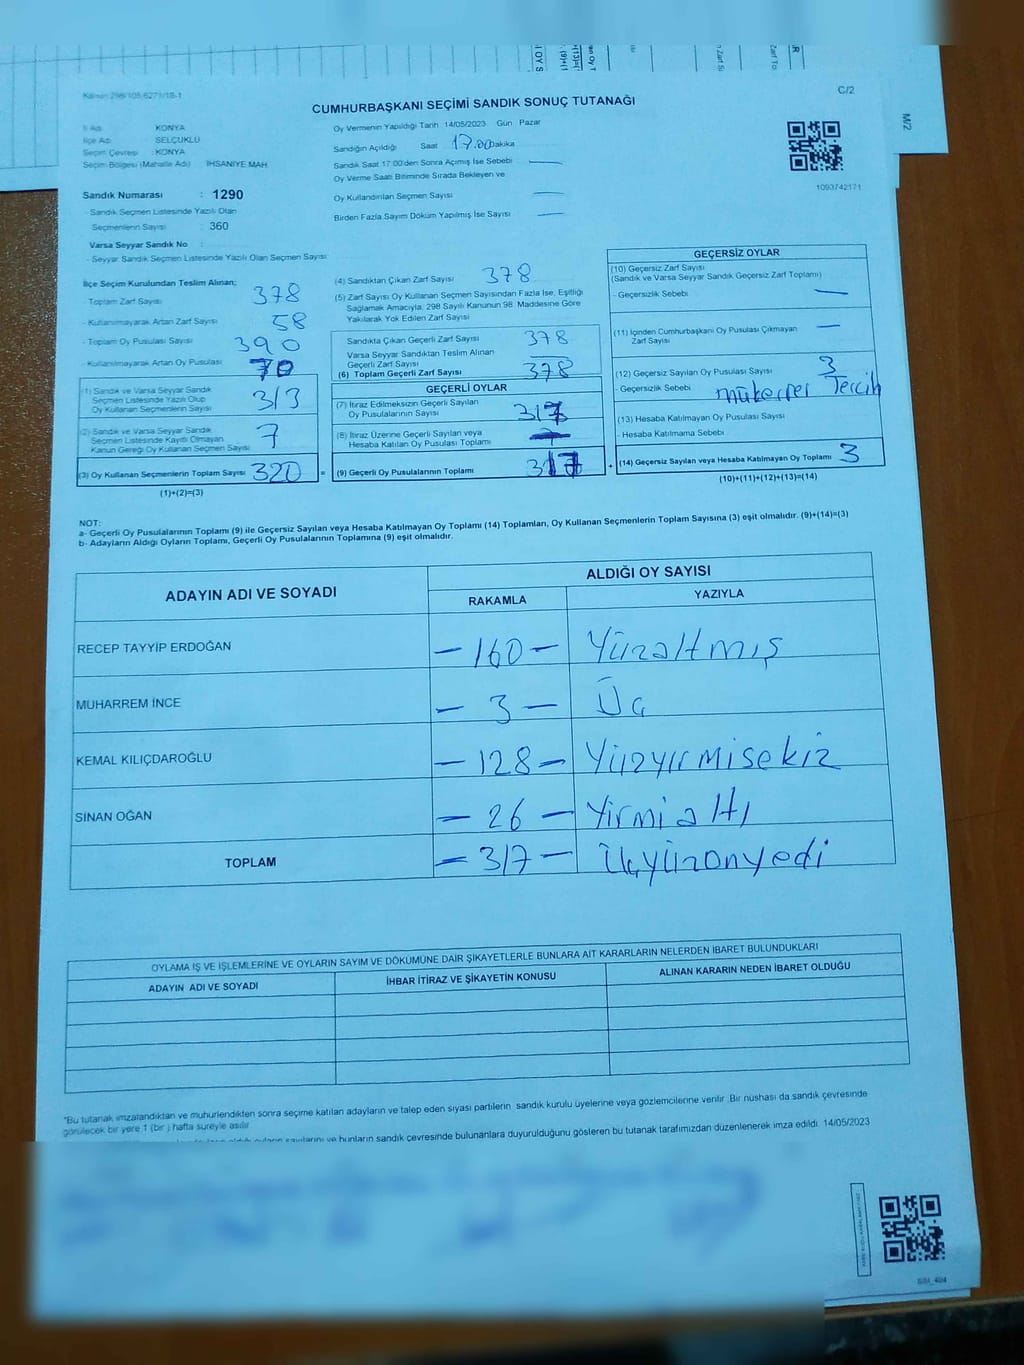 Kanun 298/105-6271/18-1
CUMHURBAŞKANI SEÇİMİ SANDIK SONUÇ TUTANAĞI
C/2
M/2
İl Adı KONYA
İlçe Adı SELÇUKLU
Seçim Çevresi : KONYA
Seçim Bölgesi (Mahalle Adı) İHSANİYE MAH.
Oy Vermenin Yapıldığı Tarih 14/05/2023 Gün Pazar
Sandığın Açıldığı Saat 17.00 Dakika
Sandık Saat 17:00'den Sonra Açımış İse Sebebi —
Oy Verme Saati Bitiminde Sırada Bekleyen ve
Oy Kullandırılan Seçmen Sayısı —
Birden Fazla Sayım Döküm Yapılmış İse Sayısı —
1093742171
Sandık Numarası : 1290
- Sandık Seçmen Listesinde Yazılı Olan
Seçmenlerin Sayısı : 360
Varsa Seyyar Sandık No :
- Seyyar Sandık Seçmen Listesinde Yazılı Olan Seçmen Sayısı:
İlçe Seçim Kurulundan Teslim Alınan;
- Toplam Zarf Sayısı 378
- Kullanılmayarak Artan Zarf Sayısı 58
- Toplam Oy Pusulası Sayısı 390
- Kullanılmayarak Artan Oy Pusulası 70
(1) Sandık ve Varsa Seyyar Sandık
Seçmen Listesinde Yazılı Olup
Oy Kullanan Seçmenlerin Sayısı 313
(2) Sandık ve Varsa Seyyar Sandık
Seçmen Listesinde Kayıtlı Olmayan
Kanun Gereği Oy Kullanan Seçmen Sayısı 7
(3) Oy Kullanan Seçmenlerin Toplam Sayısı 320 =
(1)+(2)=(3)
(4) Sandıktan Çıkan Zarf Sayısı 378
(5) Zarf Sayısı Oy Kullanan Seçmen Sayısından Fazla İse, Eşitliği
Sağlamak Amacıyla, 298 Sayılı Kanunun 98. Maddesine Göre
Yakılarak Yok Edilen Zarf Sayısı
Sandıkta Çıkan Geçerli Zarf Sayısı 378
Varsa Seyyar Sandıktan Teslim Alınan
Geçerli Zarf Sayısı —
(6) Toplam Geçerli Zarf Sayısı 378
GEÇERLİ OYLAR
(7) İtiraz Edilmeksizin Geçerli Sayılan
Oy Pusulalarının Sayısı 317
(8) İtiraz Üzerine Geçerli Sayılan veya
Hesaba Katılan Oy Pusulası Toplamı
(9) Geçerli Oy Pusulalarının Toplamı 317 +
GEÇERSİZ OYLAR
(10) Geçersiz Zarf Sayısı
(Sandık ve Varsa Seyyar Sandık Geçersiz Zarf Toplamı)
- Geçersizlik Sebebi —
(11) İçinden Cumhurbaşkanı Oy Pusulası Çıkmayan
Zarf Sayısı —
(12) Geçersiz Sayılan Oy Pusulası Sayısı 3
- Geçersizlik Sebebi mükerrer Tercih
(13) Hesaba Katılmayan Oy Pusulası Sayısı
- Hesaba Katılmama Sebebi
(14) Geçersiz Sayılan veya Hesaba Katılmayan Oy Toplamı 3
(10)+(11)+(12)+(13)=(14)
NOT:
a- Geçerli Oy Pusulalarının Toplamı (9) ile Geçersiz Sayılan veya Hesaba Katılmayan Oy Toplamı (14) Toplamları, Oy Kullanan Seçmenlerin Toplam Sayısına (3) eşit olmalıdır. (9)+(14)=(3)
b- Adayların Aldığı Oyların Toplamı, Geçerli Oy Pusulalarının Toplamına (9) eşit olmalıdır.
ADAYIN ADI VE SOYADI
ALDIĞI OY SAYISI
RAKAMLA YAZIYLA
RECEP TAYYİP ERDOĞAN – 160 – Yüzaltmış
MUHARREM İNCE – 3 – Üç
KEMAL KILIÇDAROĞLU – 128 – Yüzyirmisekiz
SİNAN OĞAN – 26 – Yirmi altı
TOPLAM – 317 – üçyüzonyedi
OYLAMA İŞ VE İŞLEMLERİNE VE OYLARIN SAYIM VE DÖKÜMÜNE DAİR ŞİKAYETLERLE BUNLARA AİT KARARLARIN NELERDEN İBARET BULUNDUKLARI
ADAYIN ADI VE SOYADI İHBAR İTİRAZ VE ŞİKAYETİN KONUSU ALINAN KARARIN NEDEN İBARET OLDUĞU
*Bu tutanak imzalandıktan ve mühürlendikten sonra seçime katılan adayların ve talep eden siyasi partilerin sandık kurulu üyelerine veya gözlemcilerine verilir. Bir nüshası da sandık çevresinde
görülecek bir yere 1 (bir) hafta süreyle asılır.
oyların sayılarını ve bunların sandık çevresinde bulunanlara duyurulduğunu gösteren bu tutanak tarafımızdan düzenlenerek imza edildi. 14/05/2023